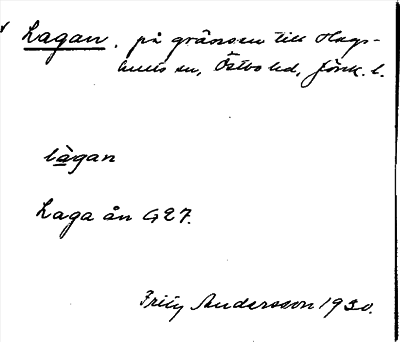 Lagan. på gränsen till Hags-
hults sn, Östbo hd, Jönk. l.
làgan
Laga ån G27.
Frity Andersson 1930.